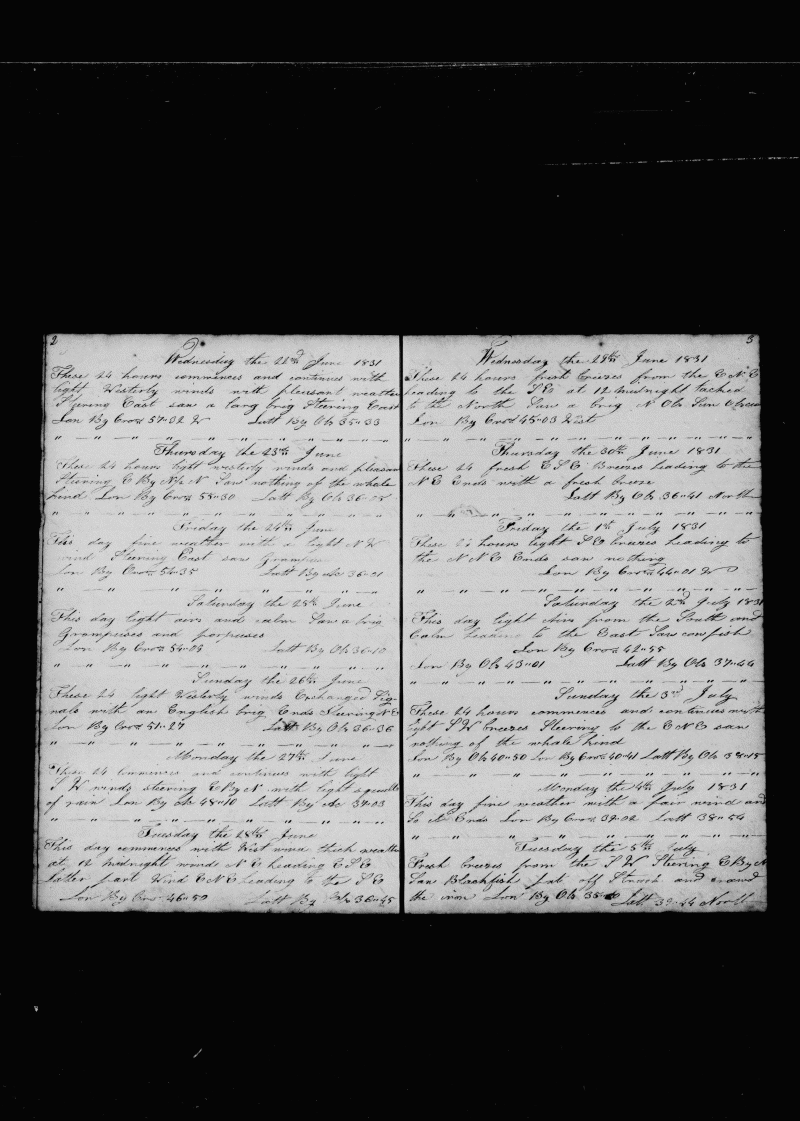 2
Wednesday the 22nd June 1831
These 24 hours commences and continues with
light Westerly winds with pleasant weather
Steering East saw a larg brig Steering East
Lon By Cron 57"02 W Latt By Ob 35"33
Thursday the 23rd June
These 24 hours light westerly winds and pleasan
Steering E By N½ N Saw nothing of the whale
kind Lon By Cron 55"30 Latt By Ob 36"
Friday the 24th June
This day fine weather with a light N W
wind Steering East saw Grampus
Lon By Cron 54"35 Latt By ob 36"01
Saturday the 25th June
This day light airs and calm Saw a brig
Grampuses and porpeses
Lon By Cron 54"03 Latt By Ob 36"10
Sunday the 26th June
These 24 light Westerly winds Exchanged Sig-
nals with an English brig Ends Steering N E
Lon By Cron 51"27 Latt By Ob 36"36
Monday the 27th June
These 24 commences and continues with light
S W winds steering E By N with light squalls
of rain Lon By ob 48"10 Latt By ob 37"03
Tuesday the 28th June
This day commences with West wind thick weather
at 12 midnight wind N E heading E S E
latter part Wind E N E leading to the S E
Lon By Cron 46"50 Latt By Ob 36"45
3
Wednesday the 29th June 1831
These 24 hours fresh breezes from the E N E
leading to the S E at 12 midnight tacked
to the North Saw a brig N Ob Sun Obscur
Lon By Cron 45"03 West
Thursday the 30th June 1831
These 24 fresh E S E Breezes leading to the
N E Ends with a fresh breeze
Latt By Ob 36"41 North
Friday the 1st July 1831
These 24 hours light S E breezes heading to
the N N E Ends saw nothing
Lon By Cron 44"01 W
Saturday the 2nd July 1831
This day light Airs from the South and
Calm leading to the East Saw cowfish
Lon By Cron 42"55
Lon By Ob 43"01 Latt By Ob 37"44
Sunday the 3rd July
These 24 hours commences and continues with
light S W breezes Steering to the E N E saw
nothing of the whale kind
Lon By Ob 40"50 Lon By Cron 40"41 Latt By Ob 38"15
Monday the 4th July 1831
This day fine weather with a fair wind and
So it Ends Lon By Cron 39"02 Latt 38"54
Tuesday the 5th July
Fresh breezes from the S W Steering E By N
Saw Blackfish put off Struck and drawd
the iron Lon By Ob 35" Latt 39"44 North